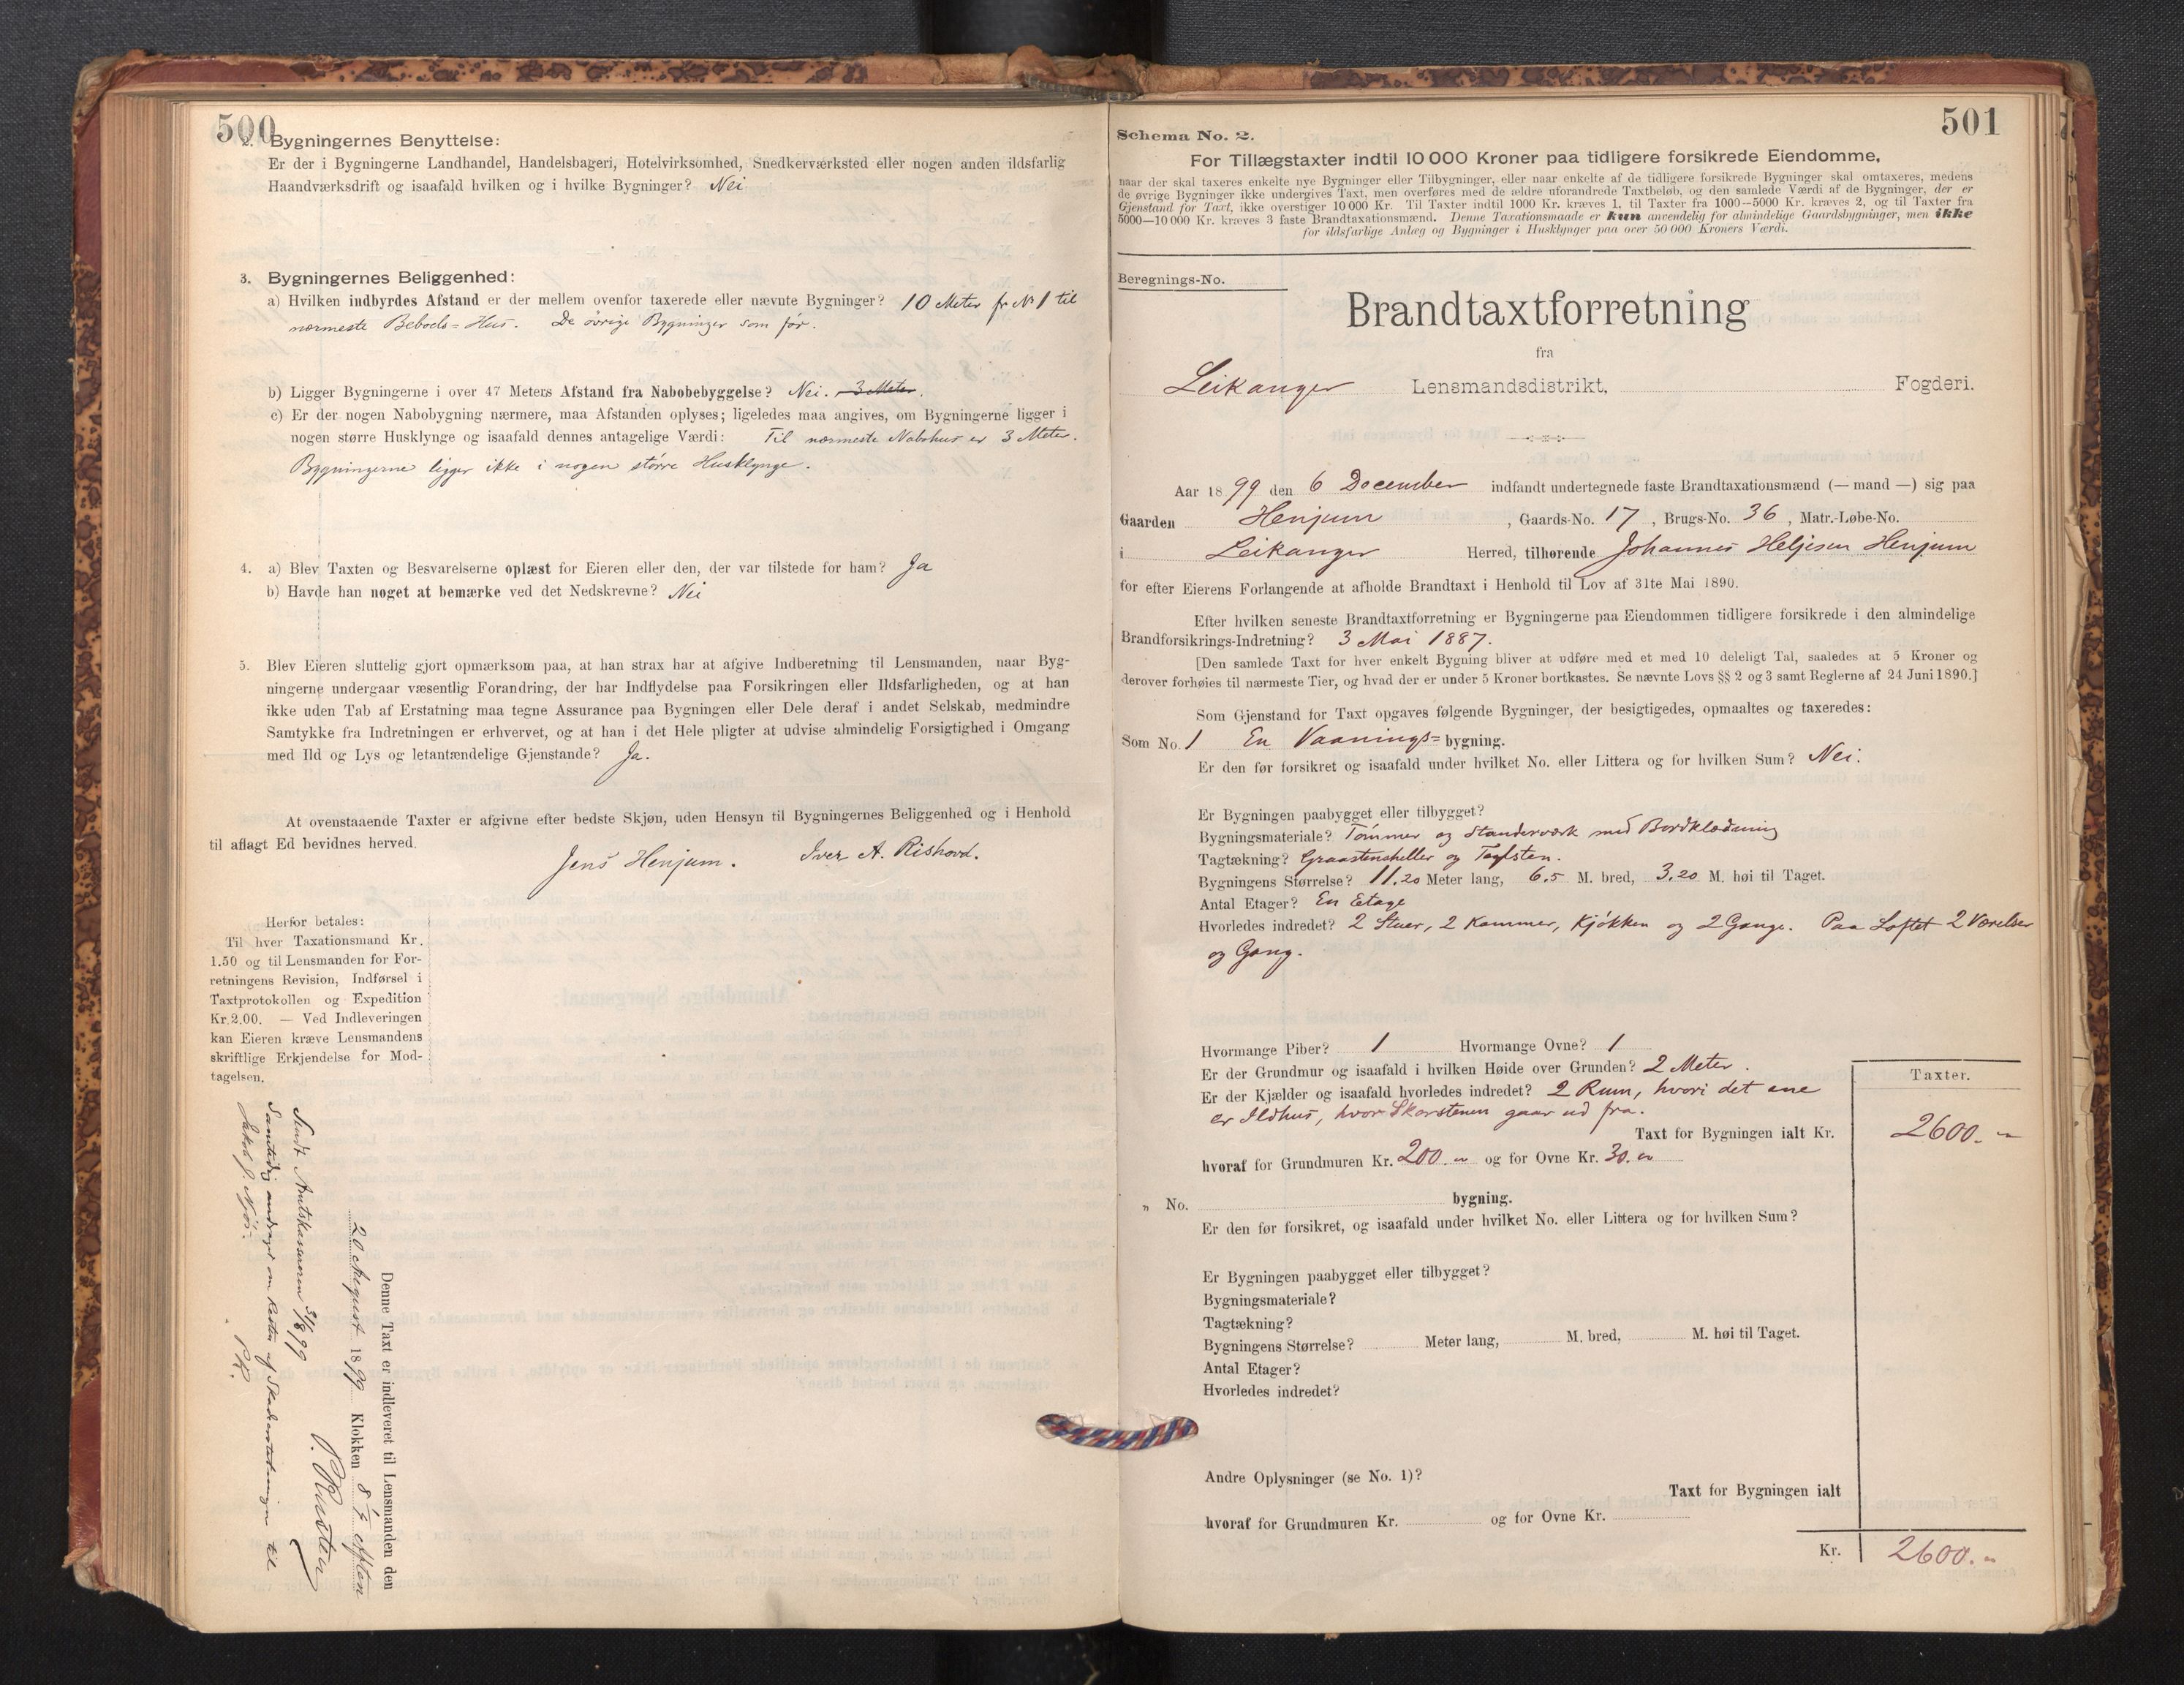 500
2. Bygningernes Benyttelse:
Er der i Bygningerne Landhandel, Handelsbageri, Hotelvirksomhed, Snedkerværksted eller nogen anden ildsfarlig
Haandværksdrift og isaafald hvilken og i hvilke Bygninger? Nei
3. Bygningernes Beliggenhed:
a) Hvilken indbyrdes Afstand er der mellem ovenfor taxerede eller nævnte Bygninger? 10 Meter fr No 1 til
nærmeste Beboels=Hus. De övrige Bygninger som för.
b) Ligger Bygningerne i over 47 Meters Afstand fra Nabobebyggelse? Nei. 3 Meter.
c) Er der nogen Nabobygning nærmere, maa Afstanden oplyses; ligeledes maa angives, om Bygningerne ligger i
nogen større Husklynge og isaafald dennes antagelige Værdi: Til nærmeste Nabohus er 3 Meter.
Bygningerne ligger ikke i nogen större Husklynge.
4. a) Blev Taxten og Besvarelserne oplæst for Eieren eller den, der var tilstede for ham? Ja
b) Havde han noget at bemærke ved det Nedskrevne? Nei
5. Blev Eieren sluttelig gjort opmærksom paa, at han strax har at afgive Indberetning til Lensmanden, naar Byg-
ningerne undergaar væsentlig Forandring, der har Indflydelse paa Forsikringen eller Ildsfarligheden, og at han
ikke uden Tab af Erstatning maa tegne Assurance paa Bygningen eller Dele deraf i andet Selskab, medmindre
Samtykke fra Indretningen er erhvervet, og at han i det Hele pligter at udvise almindelig Forsigtighed i Omgang
med Ild og Lys og letantændelige Gjenstande? Ja.
At ovenstaaende Taxter er afgivne efter bedste Skjøn, uden Hensyn til Bygningernes Beliggenhed og i Henhold
til aflagt Ed bevidnes herved.
Jens Henjum. Iver A. Rishovd.
Herfor betales:
Til hver Taxationsmand Kr.
1.50 og til Lensmanden for For-
retningens Revision, Indførsel i
Taxtprotokollen og Expedition
Kr. 2.00. — Ved Indleveringen
kan Eieren kræve Lensmandens
skriftlige Erkjendelse for Mod-
tagelsen.
Denne Taxt er indleveret til Lensmanden den
20 August 1899 Klokken 8 ½ aften
P. Rusten
Sendt Amtskassereren 31/8 99
Samtidig andraget om Resten af Skadeerstatningen til
P.R.
501
Schema No. 2.
For Tillægstaxter indtil 10 000 Kroner paa tidligere forsikrede Eiendomme,
naar der skal taxeres enkelte nye Bygninger eller Tilbygninger, eller naar enkelte af de tidligere forsikrede Bygninger skal omtaxeres, medens
de øvrige Bygninger ikke undergives Taxt, men overføres med de ældre uforandrede Taxtbeløb, og den samlede Værdi af de Bygninger, der er
Gjenstand for Taxt, ikke overstiger 10 000 Kr. Til Taxter indtil 1000 Kr. kræves 1, til Taxter fra 1000—5000 Kr. kræves 2, og til Taxter fra
5000—10 000 Kr. kræves 3 faste Brandtaxationsmænd. Denne Taxationsmaade er kun anvendelig for almindelige Gaardsbygninger, men ikke
for ildsfarlige Anlæg og Bygninger i Husklynger paa over 50 000 Kroners Værdi.
Beregnings-No.
Brandtaxtforretning
fra
Leikanger Lensmandsdistrikt, Fogderi.
Aar 1899 den 6 December indfandt undertegnede faste Brandtaxationsmænd (— mand —) sig paa
Gaarden Henjum, Gaards-No. 17, Brugs-No. 36, Matr.-Løbe-No.
i Leikanger Herred, tilhørende Johannes Heljesen Henjum
for efter Eierens Forlangende at afholde Brandtaxt i Henhold til Lov af 31te Mai 1890.
Efter hvilken seneste Brandtaxtforretning er Bygningerne paa Eiendommen tidligere forsikrede i den almindelige
Brandforsikrings-Indretning? 3 Mai 1887.
[Den samlede Taxt for hver enkelt Bygning bliver at udføre med et med 10 deleligt Tal, saaledes at 5 Kroner og
derover forhøies til nærmeste Tier, og hvad der er under 5 Kroner bortkastes. Se nævnte Lovs §§ 2 og 3 samt Reglerne af 24 Juni 1890.]
Som Gjenstand for Taxt opgaves følgende Bygninger, der besigtigedes, opmaaltes og taxeredes:
Som No. 1 En Vaanings=bygning.
Er den før forsikret og isaafald under hvilket No. eller Littera og for hvilken Sum? Nei.
Er Bygningen paabygget eller tilbygget?
Bygningsmateriale? Tömmer og Standerværk med Bordklædning
Tagtækning? Graastensheller og Taglsten.
Bygningens Størrelse? 11.20 Meter lang, 6.5 M. bred, 3.20 M. høi til Taget.
Antal Etager? En Etage
Hvorledes indredet? 2 Stuer, 2 Kammer, Kjökken og 2 Gange. Paa Loftet 2 Værelser
og Gang.
Hvormange Piber? 1 Hvormange Ovne? 1
Er der Grundmur og isaafald i hvilken Høide over Grunden? 2 Meter.
Er der Kjælder og isaafald hvorledes indredet? 2 Rum, hvori det ene
er Ildhus, hvor Skorstenen gaar ud fra.
Taxter.
Taxt for Bygningen ialt Kr. 2600.-
hvoraf for Grundmuren Kr. 200.- og for Ovne Kr. 30.-
„ No. bygning.
Er den før forsikret, og isaafald under hvilket No. eller Littera og for hvilken Sum?
Er Bygningen paabygget eller tilbygget?
Bygningsmateriale?
Tagtækning?
Bygningens Størrelse? Meter lang, M. bred, M. høi til Taget.
Antal Etager?
Hvorledes indredet?
Andre Oplysninger (se No. 1)?
Taxt for Bygningen ialt
hvoraf for Grundmuren Kr. og for Ovne Kr.
Kr. 2600.-